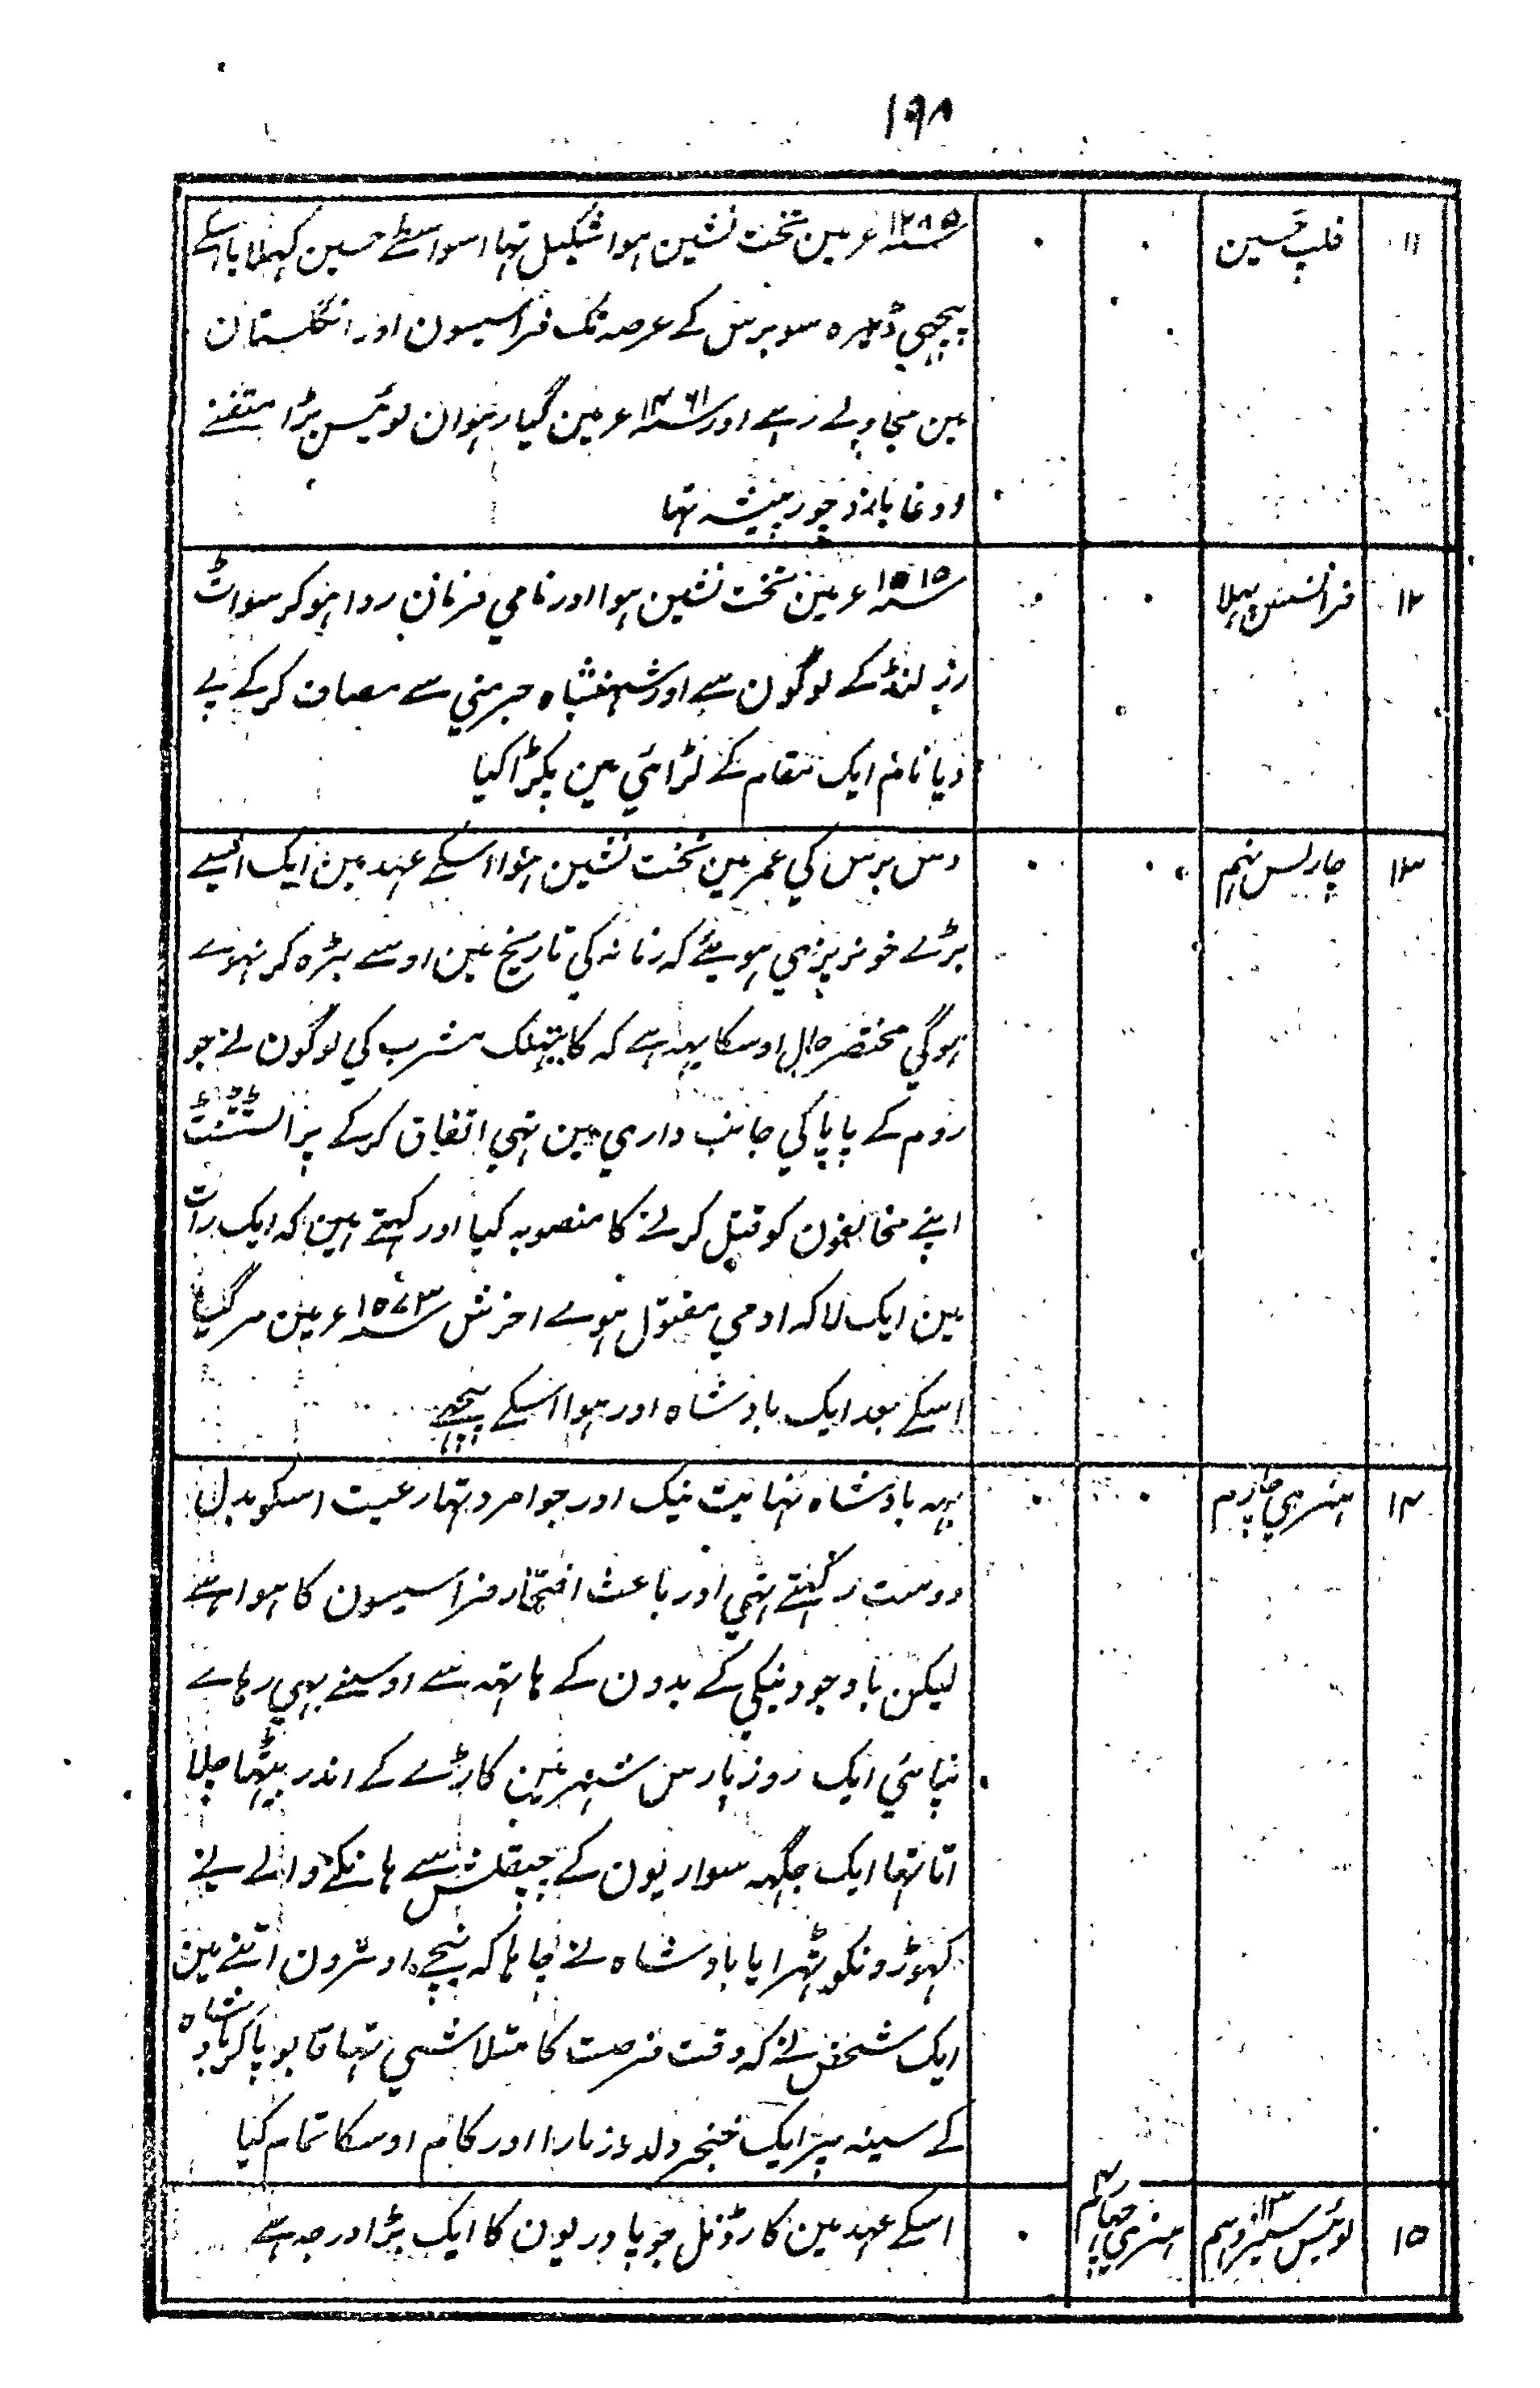 ۱۹۸
۱۱ فلپ حسین ۰ ۰ سنہ ۱۲۸۵ ع مین تخت نشین ہوا شکیل تہا اسواسطے حسین کہلایا اسکے
پیچہی ڈیڑہ سو برس کے عرصہ تک فراسیسون اور انگلستان
مین مجاولے رہے اور سنہ ۱۴۶۱ ع مین گیارہوان لوئیس بڑا متفنے
اور دغا باز جور پیشہ تہا
۱۲ فرانسس پہلا ۰ ۰ سنہ ۱۵۱۵ ع مین تخت نشین ہوا اور نامي فرمان روا ہو کر سواٹ
رز لنڈ کے لوگون سے اور شہنشاہ جرمني سے مصاف کرکے پے
ویا نام ایک مقام کے لڑائي مین پکڑا گیا
۱۳ چارلس نہم ۰ ۰ دس برس کي عمر مین تخت نشین ہوا اسکے عہد مین ایک ایسے
بڑے خونریزي ہویئ کہ زمانہ کي تاریخ مین اوسے بڑہ کر نہوے
ہوگي مختصر حال اوسکا یہہ ہے کہ کاتہلک مشرب کي لوگون نے جو
روم کے پاپا کي جانب داري مین تہي اتفاق کرکے پراٹسٹنٹ
اپنے مخالفون کو قتل کرنے کا منصوبہ کیا اور کہتے ہین کہ ایک رات
مین ایک لاکہ ادمي مقتول ہوے اخرش سنہ ۱۵۷۳ ع مین مر گیا
اسکے بعد ایک بادشاہ اور ہوا اسکے پیچہے
۱۴ ہنري چارم ۰ ۰ یہہ بادشاہ نہایت نیک اور جوامرد تہا رعیت اسکو بدل
دوست رکہتے تہي اور باعث افتخار فراسیسون کا ہوا ہے
لیکن باوجود نیکي کے بدون کے ہاتہہ سے اوسنے بہي رہاے
نپائي ایک روز پارس شہر مین کاڑے کے اندر بیٹہا چلا
اتا تہا ایک جگہہ سواریون کے چپقلش سے ہانکنے والے نے
کہوڑونکو ٹہرایا بادشاہ نے چاہا کہ نیچے اوترون اتنے مین
ایک شخص نے کہ وقت فرصت کا متلاشي تہا قابو پا کر بادشاہ
کے سینہ پر ایک خنجر دلدوز مارا اور کام اوسکا تمام کیا
۱۵ لوئیس سیزدہم ۱۳ ہنري چہارم ۴ ۰ اسکے عہد مین کارڈنل جو پادریون کا ایک بڑا درجہ ہے